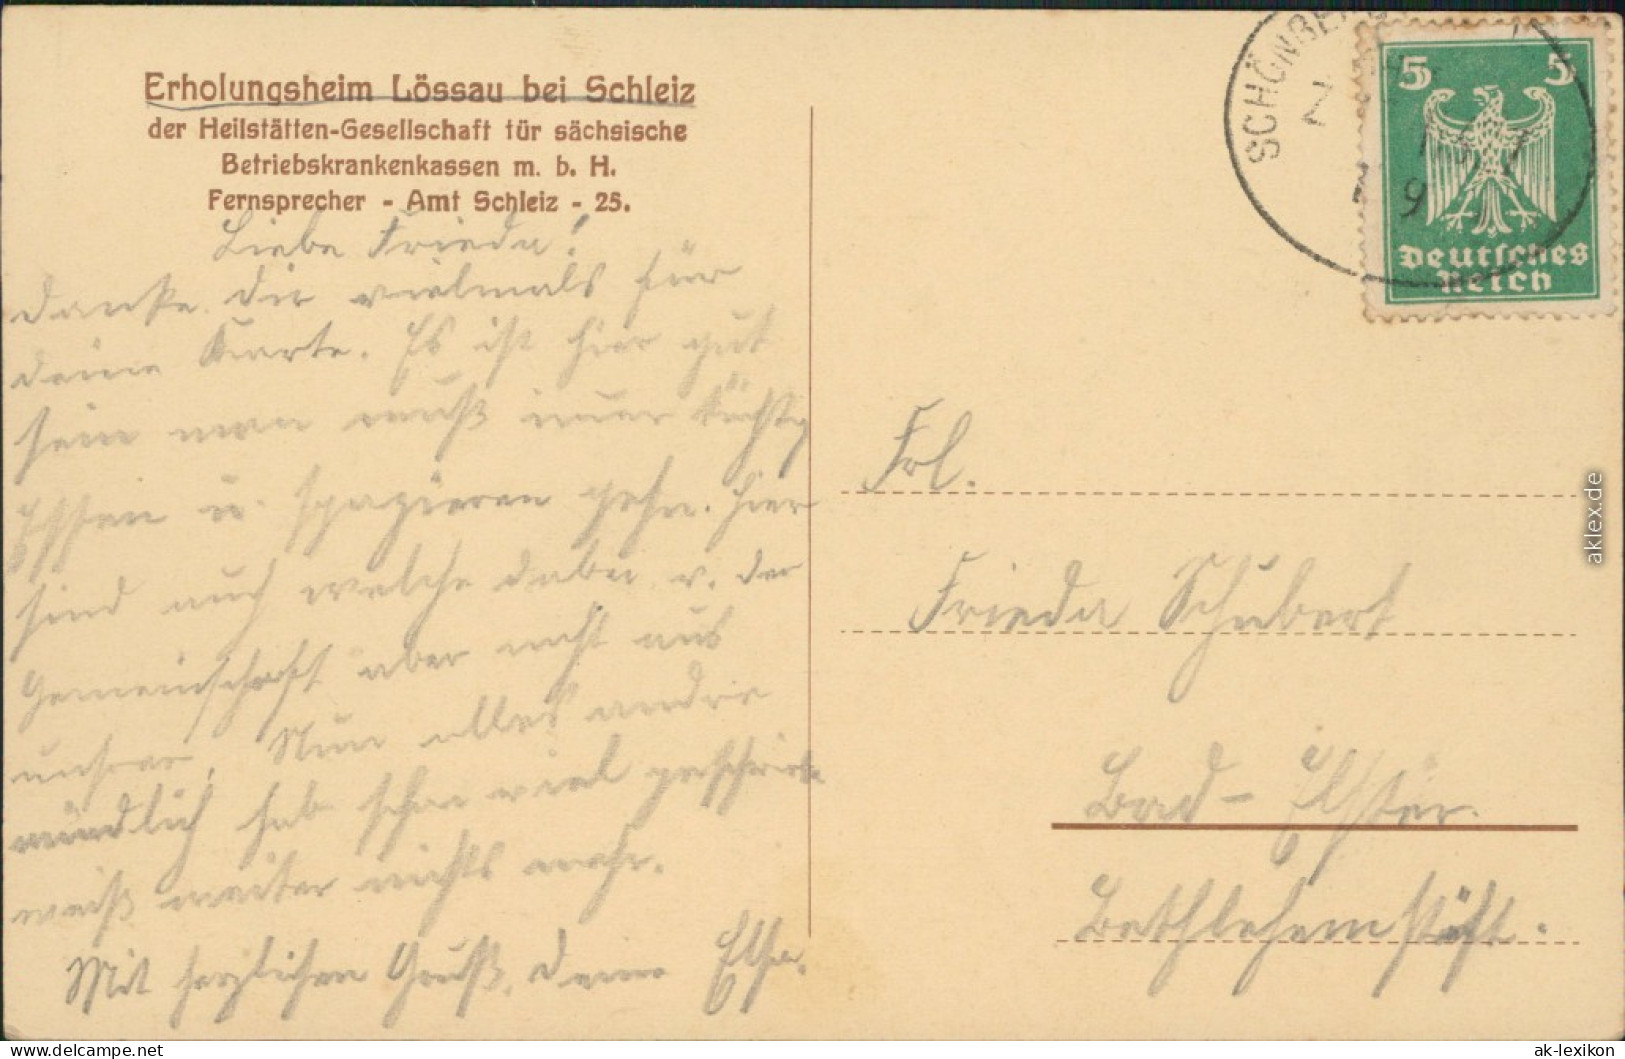 Erholungsheim Lössau bei Schleiz
der Heilstätten-Gesellschaft für sächsische
Betriebskrankenkassen m. b. H.
Fernsprecher - Amt Schleiz - 25.
Liebe Frieda!
danke dir vielmals für
deine Karte. Es ist hier gut
sein man muß immer tüchtig
Essen u. spazieren gehn. hier
sind auch welche dabei v. der
Gemeinschaft aber nicht aus
unsrer. Nun alles andre
mündlich hab schon viel geschrieb
weiß weiter nichts mehr.
Mit herzlichen Gruß, deine Elsa.
SCHÖNBERG
5 5
Deutsches
Reich
Frl.
Frieda Schubert
Bad-Elster.
Bethlehemstift.
aklex.de
www.delcampe.net
ak-lexikon